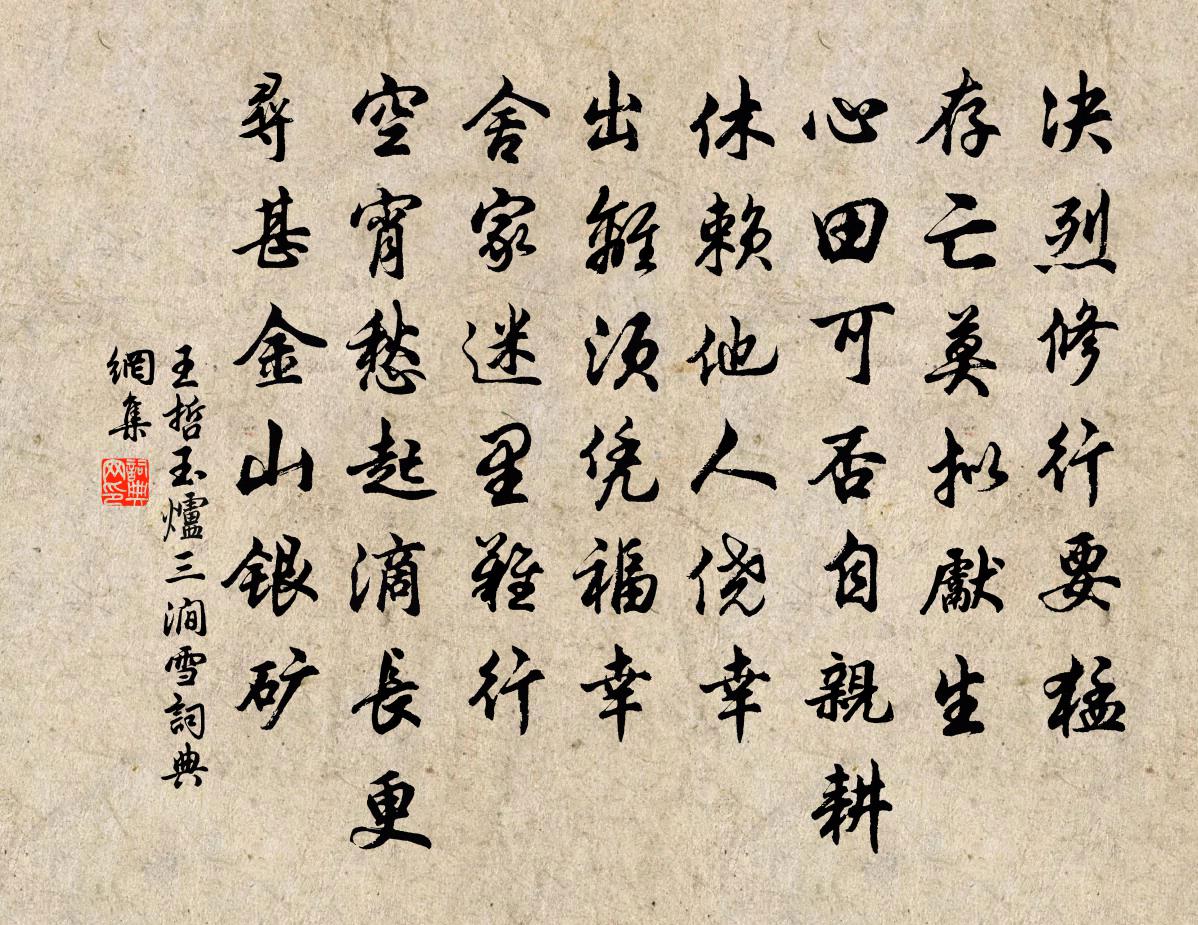 决烈修行要猛
存亡莫拟獻生
心田可否自親耕
休赖他人侥幸
出離须凭福幸
舍家迷里難行
空宵愁起滴長更
尋甚金山銀矿
王哲玉爐三澗雪詞典
網集
詞典网印